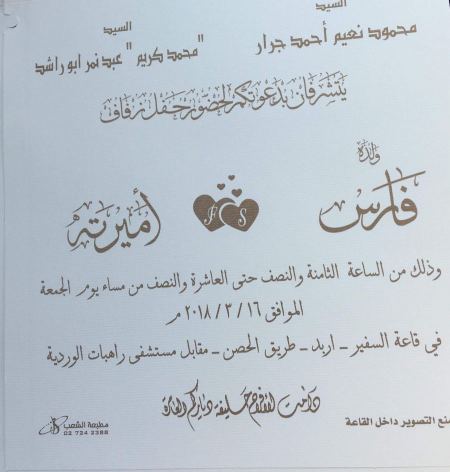 السيد
محمود نعيم أحمد جرار
السيد
"محمد كريم" عبد نمر ابو راشد
يتشرفان بدعوتكم لحضور حفل زفاف
ولده
فارس
F S
أميرته
وذلك من الساعة الثامنة والنصف حتى العاشرة والنصف من مساء يوم الجمعة
الموافق ١٦ / ٣ / ٢٠١٨ م
في قاعة السفير - اربد - طريق الحصن - مقابل مستشفى راهبات الوردية
دامت الافراح حليفة دياركم العامرة
منع التصوير داخل القاعة
مطبعة الشعب
02 724 2388